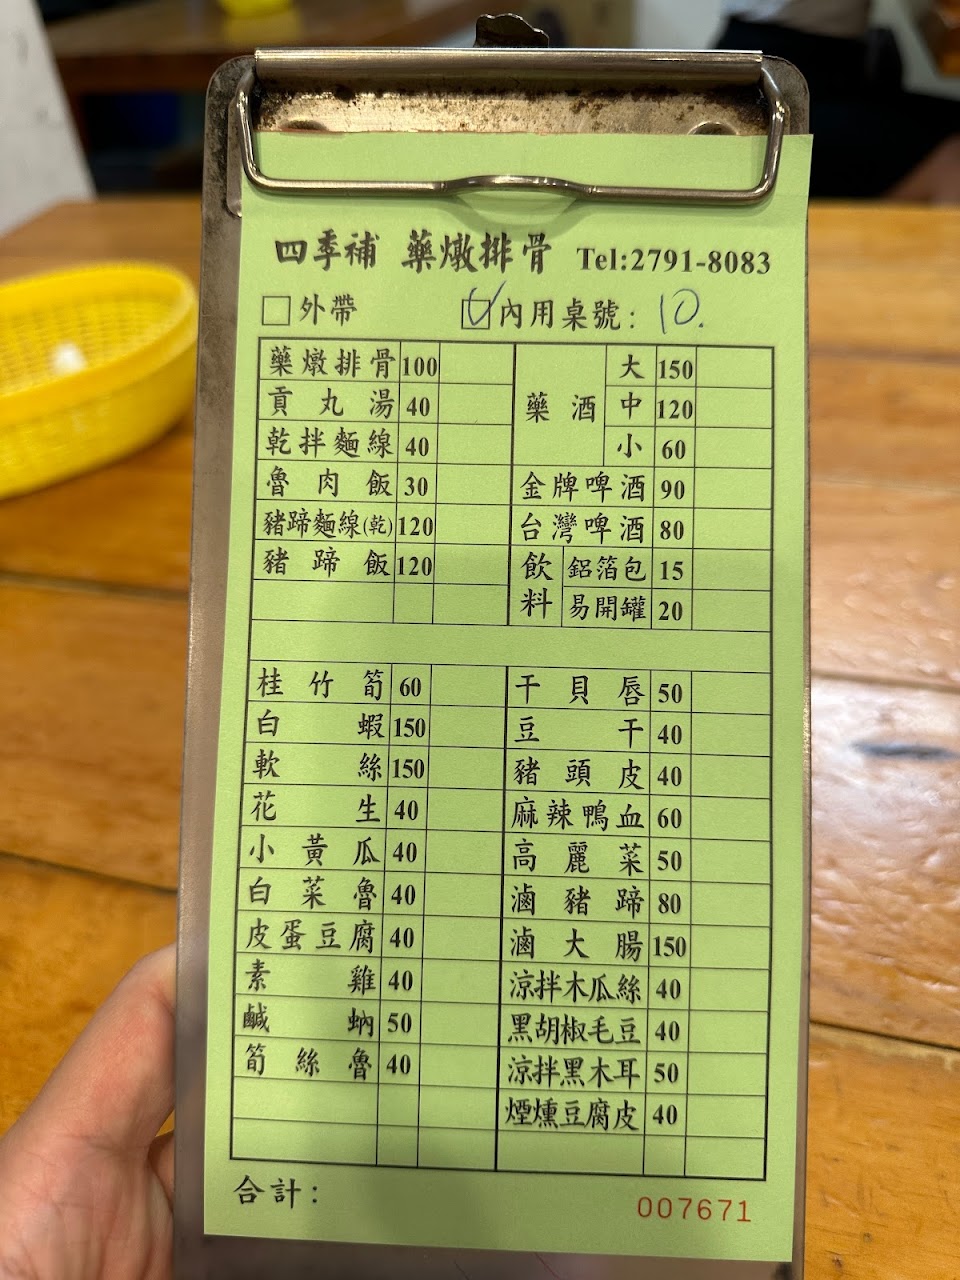 四季補 藥燉排骨 Tel:2791-8083
□外帶 ☑內用桌號: 10.
藥燉排骨 100
貢丸湯 40
乾拌麵線 40
魯肉飯 30
豬蹄麵線(乾) 120
豬蹄飯 120
藥酒 大 150
中 120
小 60
金牌啤酒 90
台灣啤酒 80
飲料 鋁箔包 15
易開罐 20
桂竹筍 60
白蝦 150
軟絲 150
花生 40
小黃瓜 40
白菜魯 40
皮蛋豆腐 40
素雞 40
鹹蚋 50
筍絲魯 40
干貝唇 50
豆干 40
豬頭皮 40
麻辣鴨血 60
高麗菜 50
滷豬蹄 80
滷大腸 150
涼拌木瓜絲 40
黑胡椒毛豆 40
涼拌黑木耳 50
煙燻豆腐皮 40
合計:
007671